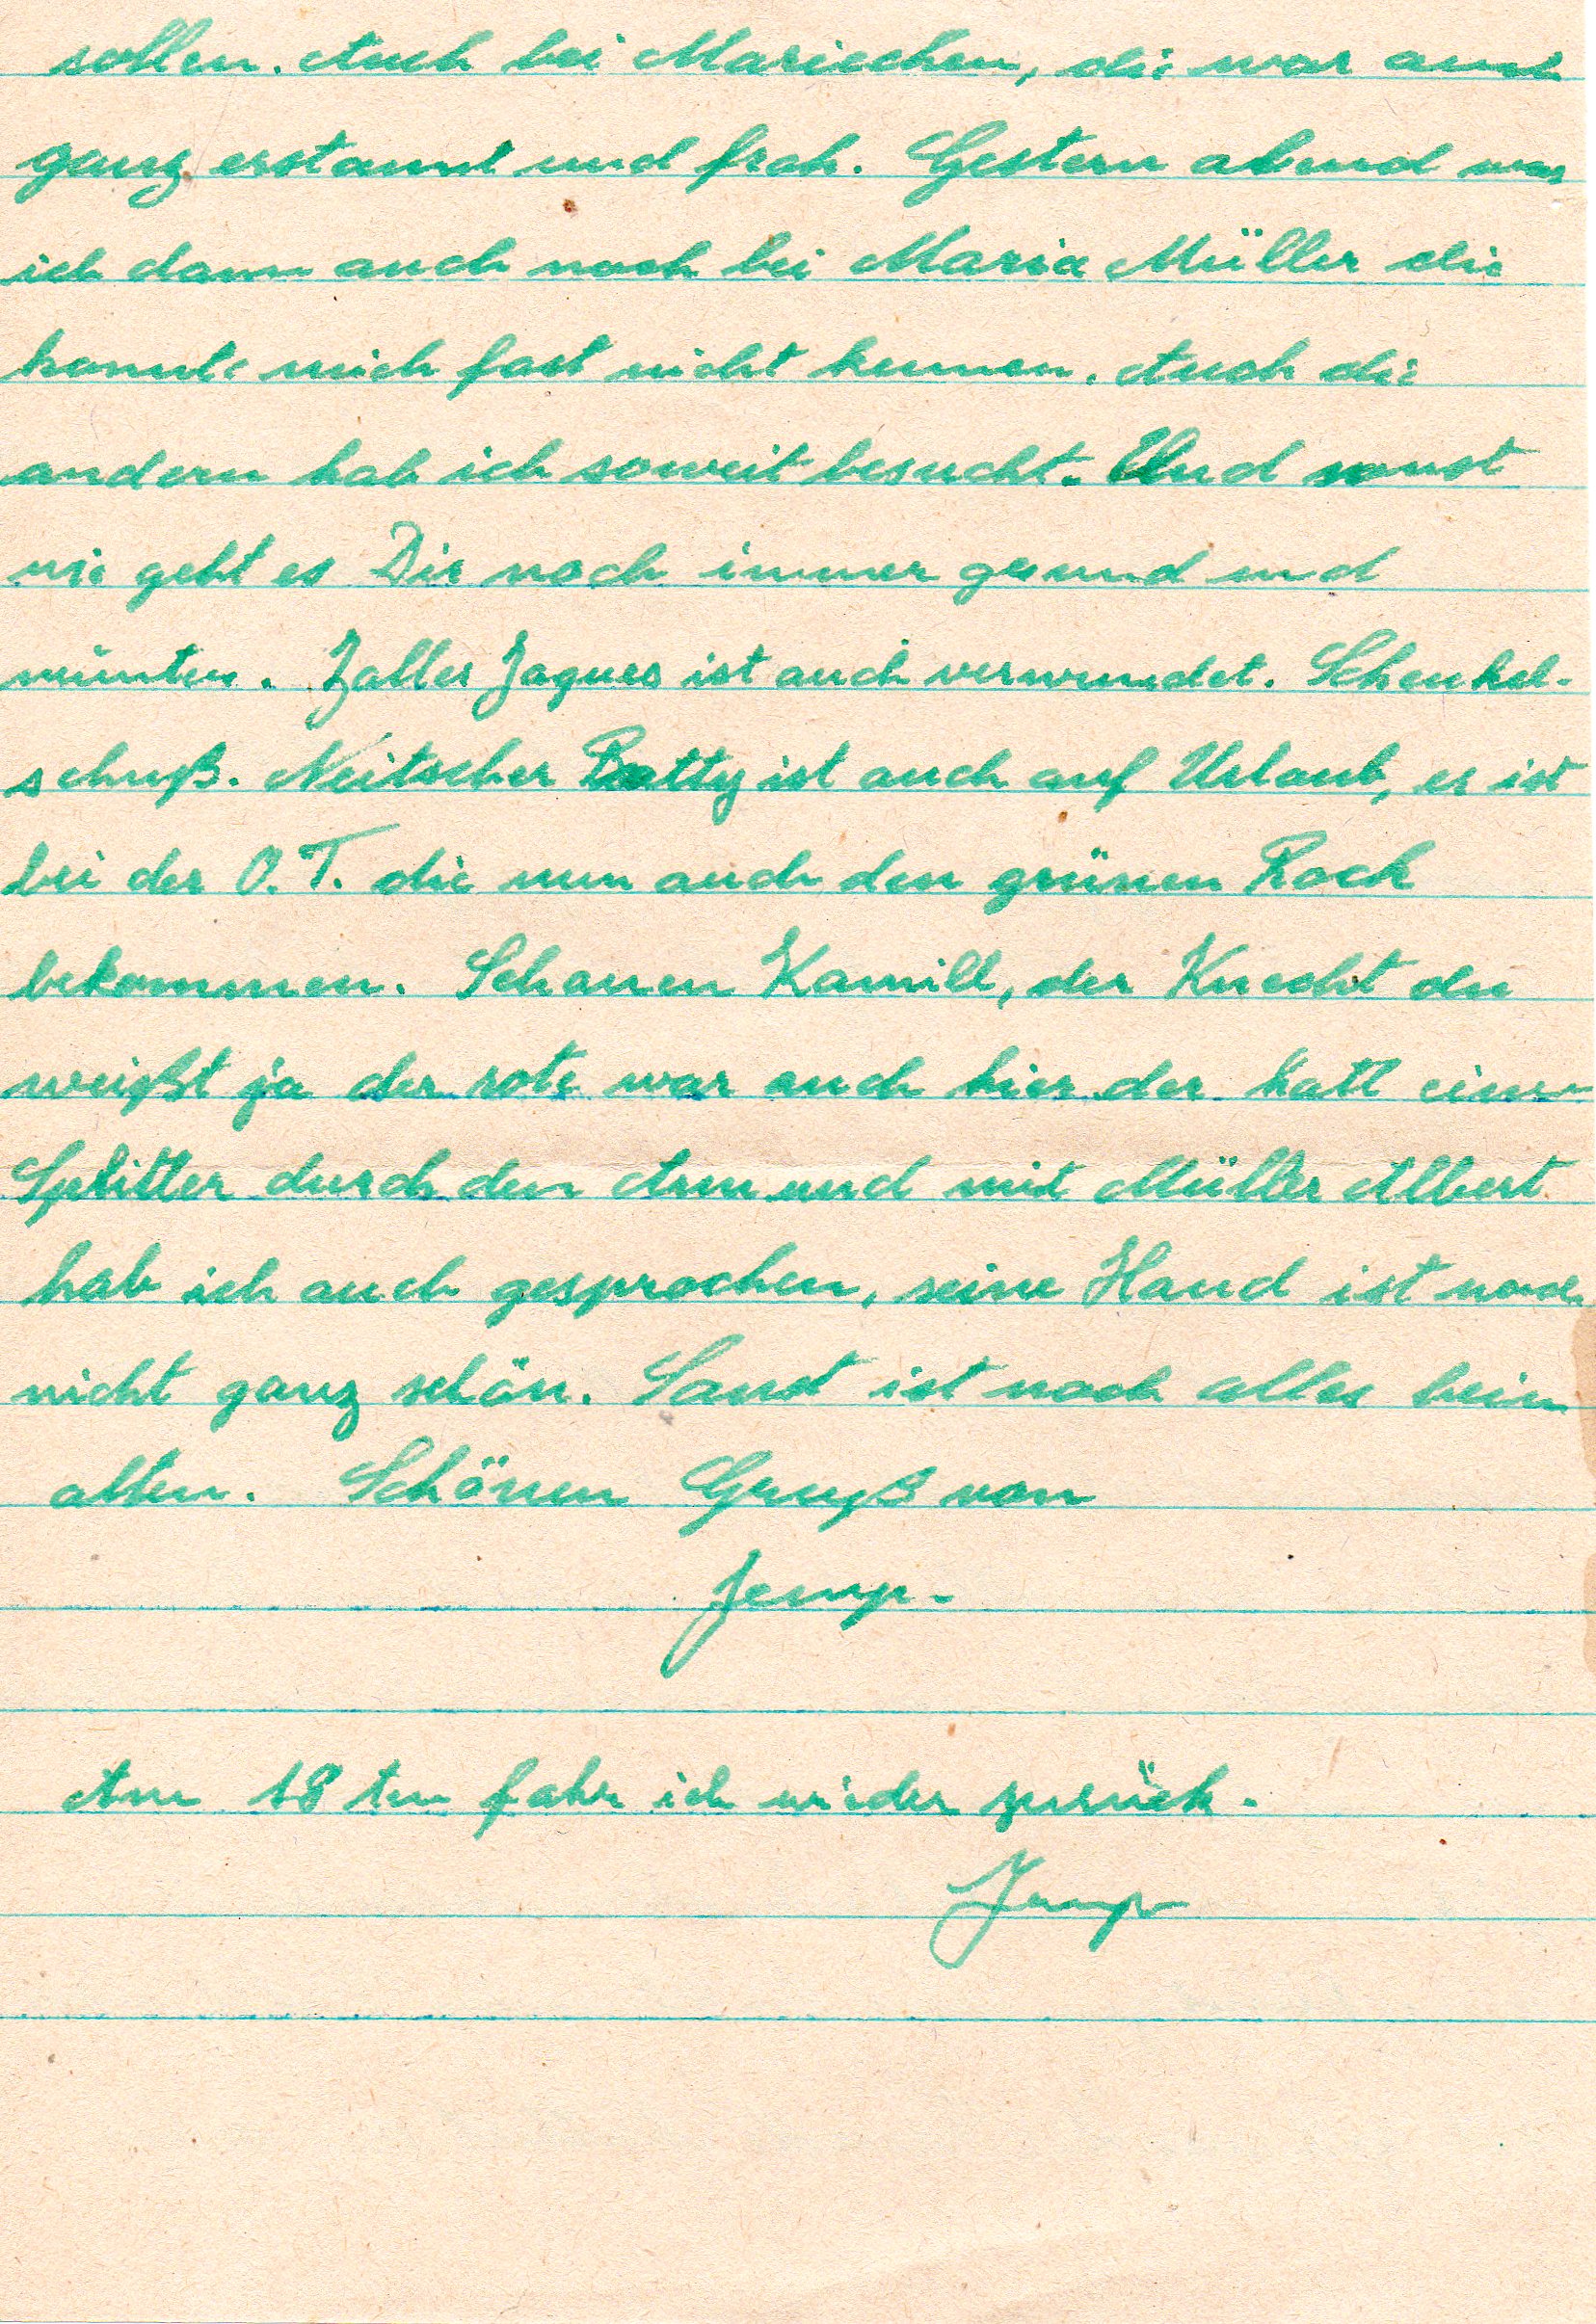 sollen. Auch bei Mariechen, die war auch
ganz erstaunt und froh. Gestern abend war
ich dann auch noch bei Maria Müller die
konnte mich fast nicht kennen. Auch die
andern hab ich soweit besucht. Und sonst
wie geht es Dir noch immer gesund und
munter. Zaller Jaques ist auch verwundet. Schenkel-
schuß. Neitscher Batty ist auch auf Urlaub, er ist
bei der O.T. die nun auch den grünen Rock
bekommen. Scharren Kamill, der Knecht du
weißt ja der rote war auch hier der hatt einen
Splitter durch den Arm und mit Müller Albert
hab ich auch gesprochen, seine Hand ist noch
nicht ganz schön. Sonst ist noch alles beim
alten. Schönen Gruß von
Jemp.
Am 18ten fahr ich wieder zurück.
Jemp